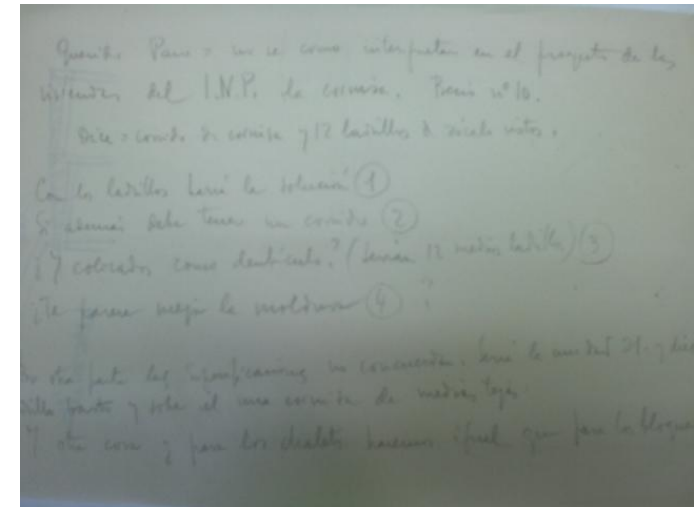 Querido Paco = no se como interpretar en el proyecto de las
viviendas del I.N.P. la cornisa. Precio nº 10.
Dice = corrido de cornisa y 12 ladillos de vistos.
Con los ladrillos haría la solución ①
Si además debe tener un corrido ②
¿Y colocados como dentículo? (serían 12 medios ladrillos) ③
¿Te parece mejor la moldura ④ ?
otra parte las no concuerdan. la unidad 51. y dice
y sobre él una cornisa de medias tejas.
Y otra cosa ¿ para los chalets haremos igual que para los bloques